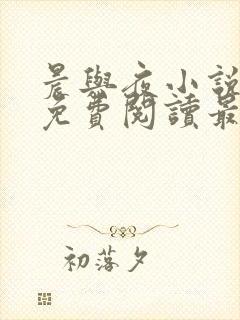 晨與夜小說
免費閱讀最
初落夕